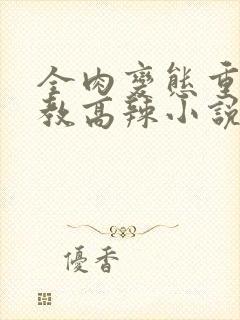 全肉變態重
教高辣小說
優香